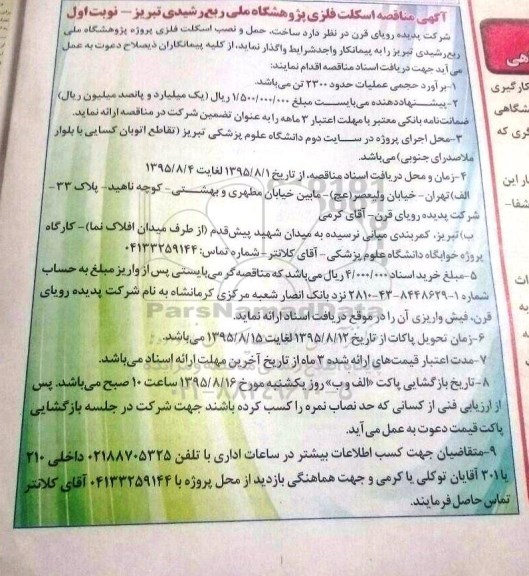 آگهی مناقصه اسکلت فلزی پژوهشگاه ملی ربع رشیدی تبریز – نوبت اول
شرکت پدیده رویای قرن در نظر دارد ساخت، حمل و نصب اسکلت فلزی پروژه پژوهشگاه ملی
ربع رشیدی تبریز را به پیمانکار واجد شرایط واگذار نماید، از کلیه پیمانکاران ذیصلاح دعوت به عمل
می آید جهت دریافت اسناد مناقصه اقدام نمایند:
۱-برآورد حجمی عملیات حدود ۲۳۰۰ تن می‌باشد.
۲-پیشنهاددهنده می‌بایست مبلغ ۱/۵۰۰/۰۰۰/۰۰۰ ریال (یک میلیارد و پانصد میلیون ریال)
ضمانت‌نامه بانکی معتبر با مهلت اعتبار ۳ ماهه را به عنوان تضمین شرکت در مناقصه ارائه نماید.
۳-محل اجرای پروژه در سایت دوم دانشگاه علوم پزشکی تبریز (تقاطع اتوبان کسایی با بلوار
ملاصدرای جنوبی) می‌باشد.
۴-زمان و محل دریافت اسناد مناقصه، از تاریخ ۱۳۹۵/۸/۱ لغایت ۱۳۹۵/۸/۴
الف) تهران- خیابان ولیعصر(عج)- مابین خیابان مطهری و بهشتی- کوچه ناهید- پلاک ۳۳-
شرکت پدیده رویای قرن- آقای کرمی
ب) تبریز، کمربندی میانی نرسیده به میدان شهید پیش‌قدم (از طرف میدان افلاک نما)- کارگاه
پروژه خوابگاه دانشگاه علوم پزشکی- آقای کلانتر- شماره تماس: ۰۴۱۳۳۲۵۹۱۴۴
۵-مبلغ خرید اسناد ۴/۰۰۰/۰۰۰ ریال می‌باشد که مناقصه‌گر می‌بایستی پس از واریز مبلغ به حساب
شماره ۱-۸۴۴۸۶۲۹-۴۳-۲۸۱۰ نزد بانک انصار شعبه مرکزی کرمانشاه به نام شرکت پدیده رویای
قرن، فیش واریزی آن را در موقع دریافت اسناد ارائه نماید.
۶-زمان تحویل پاکات از تاریخ ۱۳۹۵/۸/۱۲ لغایت ۱۳۹۵/۸/۱۵ می‌باشد.
۷-مدت اعتبار قیمت‌های ارائه شده ۳ ماه از تاریخ آخرین مهلت ارائه اسناد می‌باشد.
۸-تاریخ بازگشایی پاکت «الف و ب» روز یکشنبه مورخ ۱۳۹۵/۸/۱۶ ساعت ۱۰ صبح می‌باشد. پس
از ارزیابی فنی از کسانی که حد نصاب نمره را کسب کرده باشند جهت شرکت در جلسه بازگشایی
پاکت قیمت دعوت به عمل می‌آید.
۹-متقاضیان جهت کسب اطلاعات بیشتر در ساعات اداری با تلفن ۰۲۱۸۸۷۰۵۳۲۵ داخلی ۲۱۰
یا ۳۰۱ آقایان توکلی یا کرمی و جهت هماهنگی بازدید از محل پروژه با ۰۴۱۳۳۲۵۹۱۴۴ آقای کلانتر
تماس حاصل فرمایند.
ParsNamadData